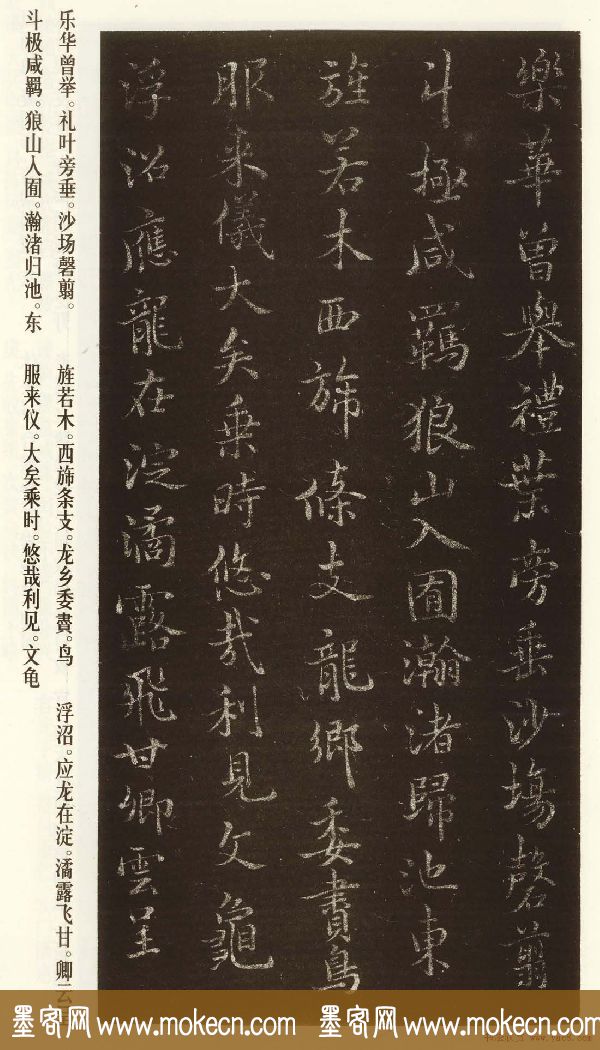 樂華曾舉禮葉旁垂沙場磬翦
斗極咸羈狼山入囿瀚渚歸池東
旌若木西旆條支龍鄉委賮鳥
服来儀大矣乗時悠哉利見文龜
浮沼應龍在淀潏露飛甘卿雲呈
乐华曾举。礼叶旁垂。沙场磬翦。
斗极咸羁。狼山入囿。瀚渚归池。东
旌若木。西旆条支。龙乡委賮。鸟
服来仪。大矣乘时。悠哉利见。文龟
浮沼。应龙在淀。潏露飞甘。卿云
墨客网 www.mokecn.com 墨客网 www.mokecn.com